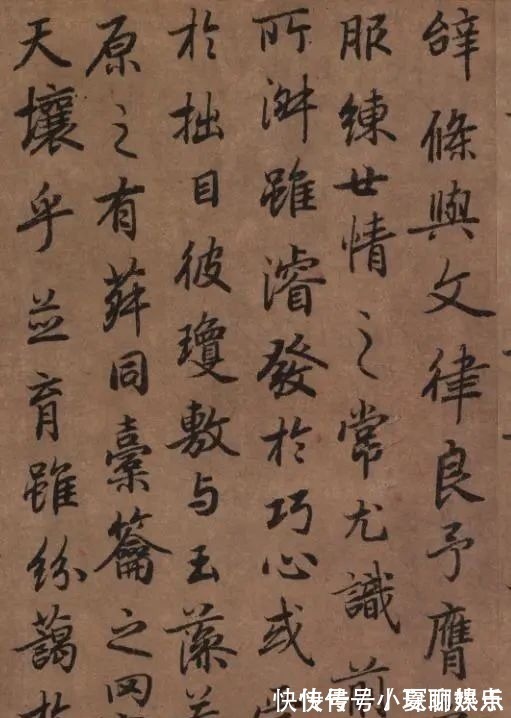 辝條與文律良予膺
服練世情之常尤識前
所淋雖濬發於巧心或
於拙目彼瓊敷与玉藻若
原之有菽同橐籥之罔
天壤乎並育雖紛藹於